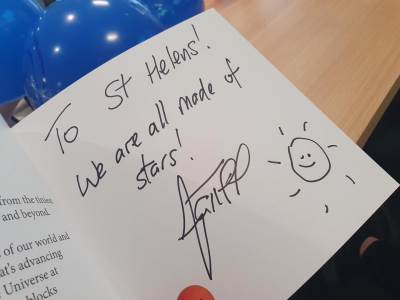 To St Helens!
We are all made of
stars!
from the tiniest
and beyond.
of our world and
at's advancing
Universe at
blocks